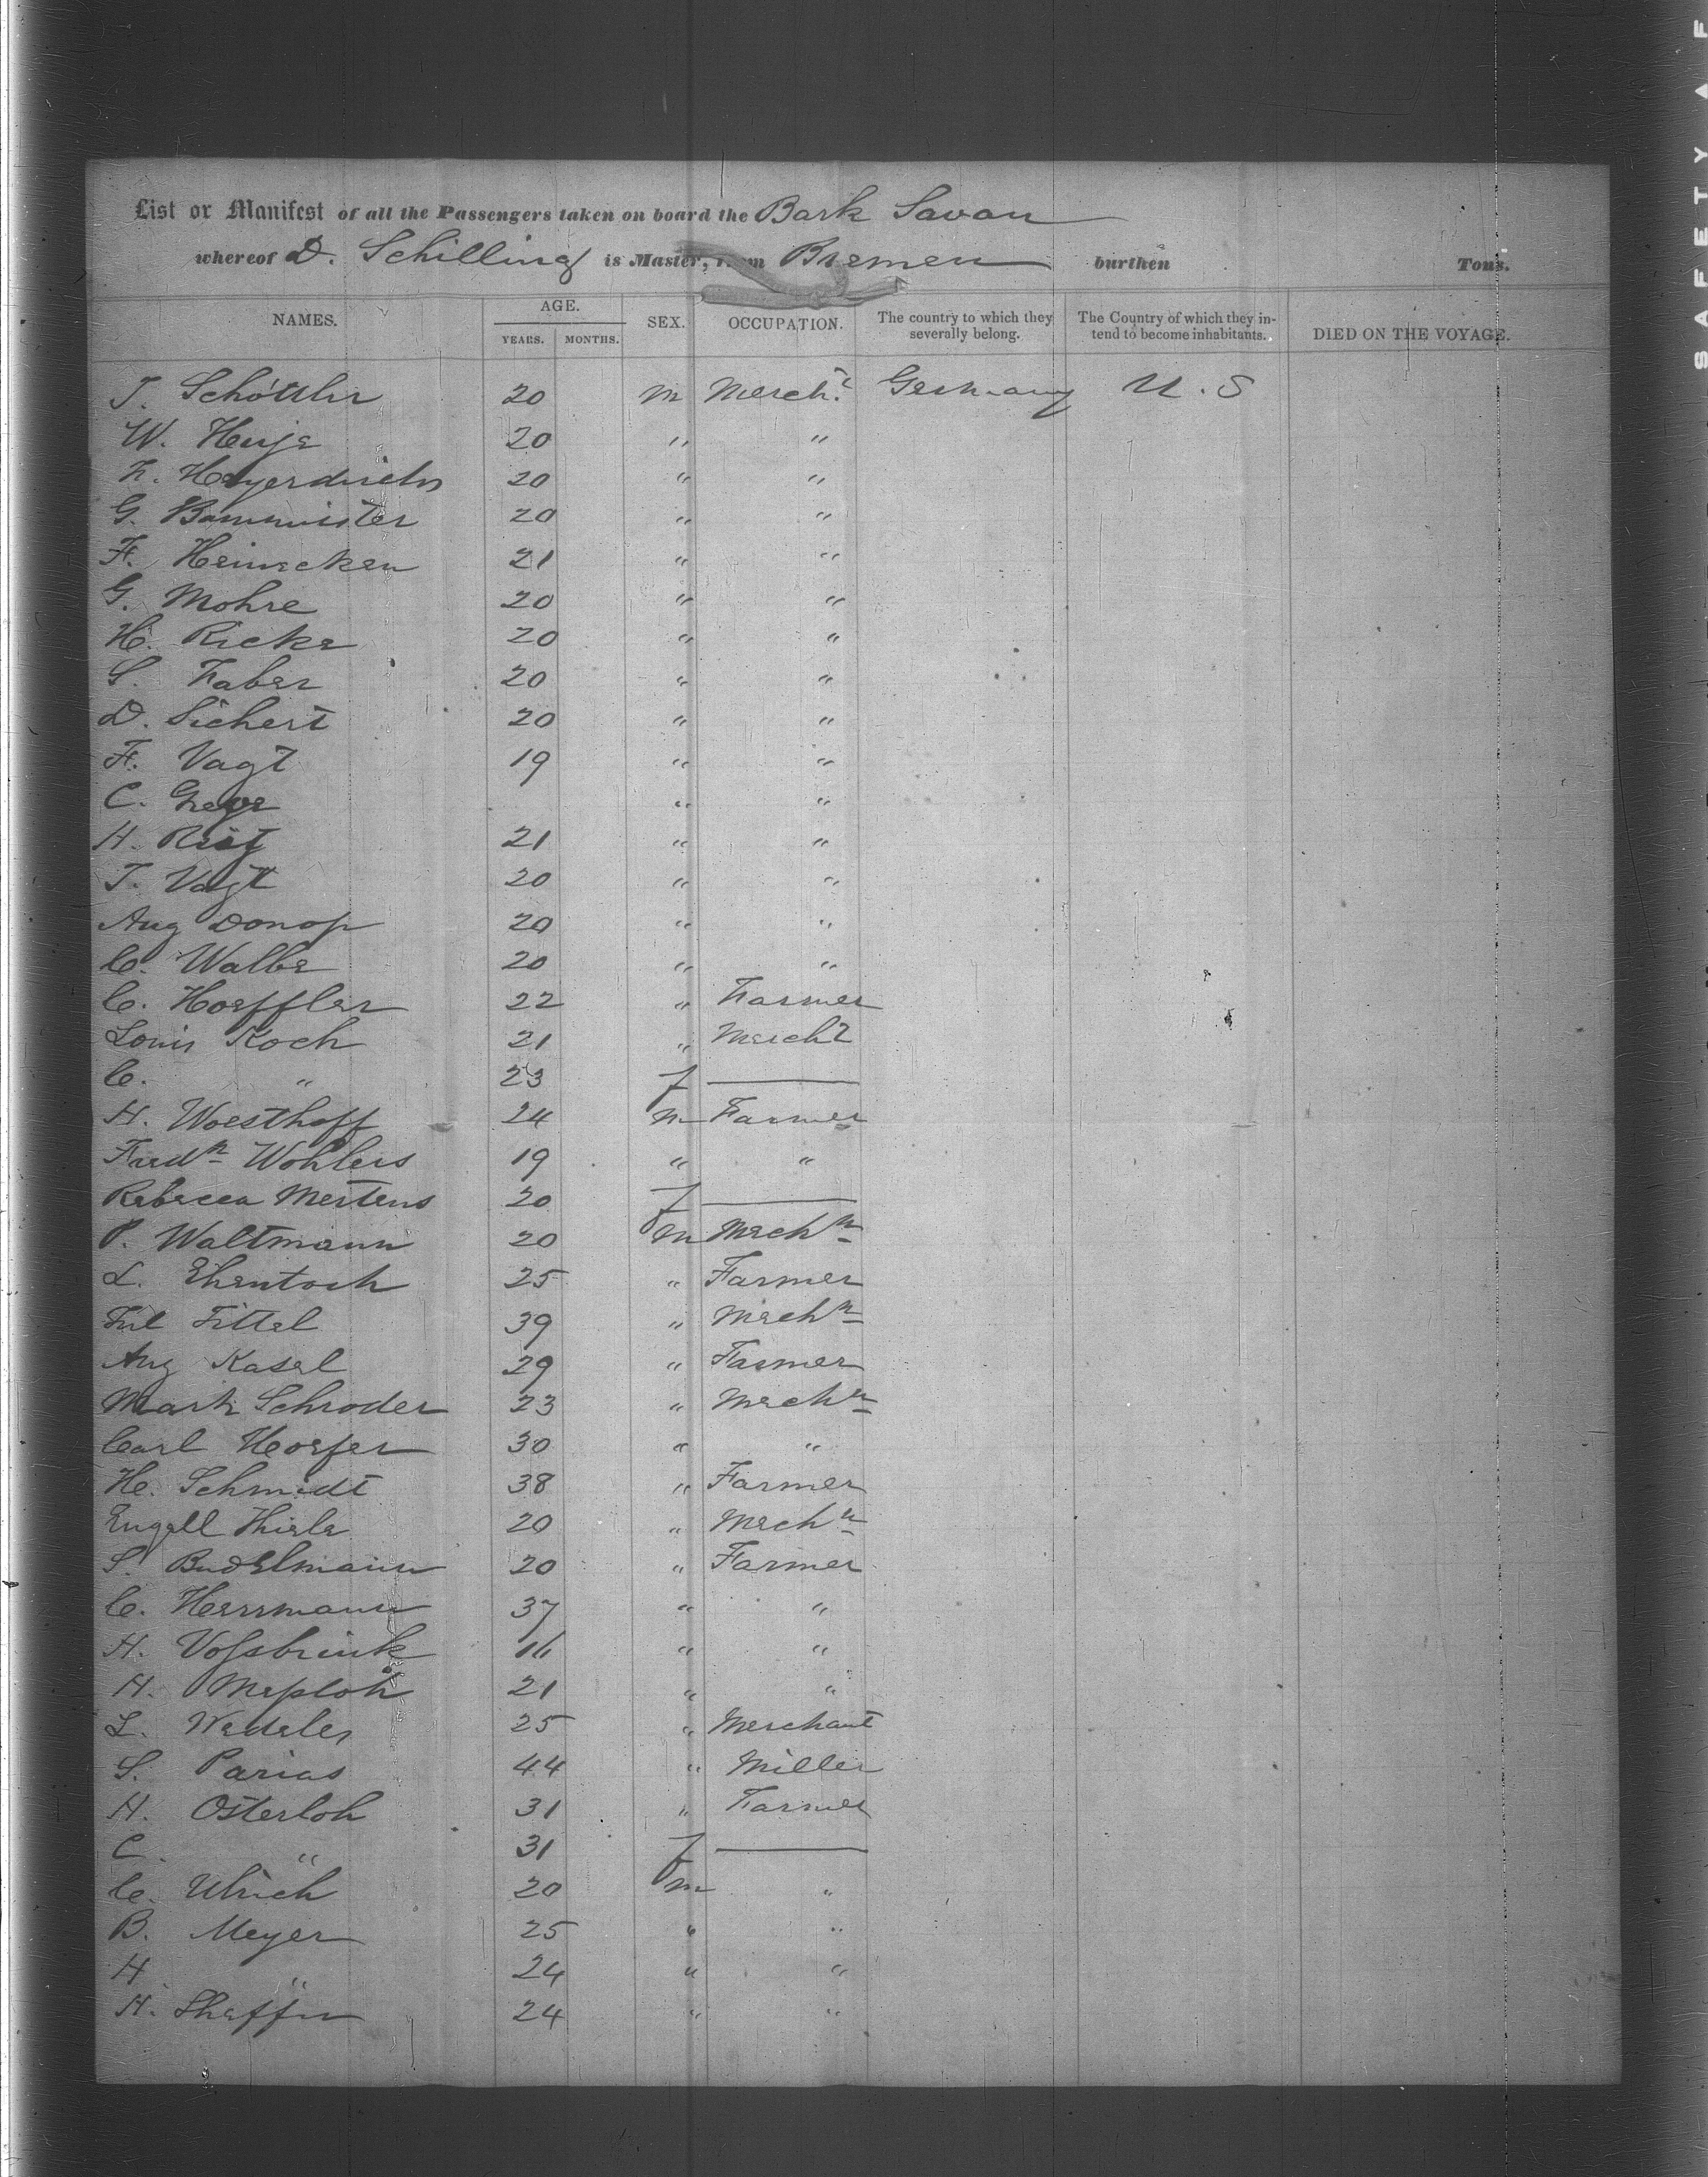 List or Manifest of all the Passengers taken on board the Bark Savan
whereof D. Schilling is Master, from Bremen burthen Tons.
NAMES. AGE. YEARS. MONTHS. SEX. OCCUPATION. The country to which they severally belong. The Country of which they intend to become inhabitants. DIED ON THE VOYAGE.
J. Schöttler 20 m Mercht Germany U. S
W. Huje 20 " "
F. Heyerdirchs 20 " "
G. Bammeister 20 " "
F. Heinecken 21 " "
G. Mohre 20 " "
H. Ricke 20 " "
S. Faber 20 " "
D. Sichert 20 " "
F. Vagt 19 " "
C. Greve " "
H. Rüst 21 " "
J. Vagt 20 " "
Aug Donop 20 " "
C. Walbe 20 " "
C. Hoeffler 22 " Farmer
Louis Koch 21 " Mercht
C. " 23 f —
H. Woesthoff 24 m Farmer
Fredk Wohlers 19 " "
Rebecca Mertens 20 f —
P. Waltmann 20 m Mechn
L. Ehentoch 25 " Farmer
Fittel 39 " Mechn
Aug Kasel 29 " Farmer
Mark Schroder 23 " Mechn
Carl Hoefer 30 " "
He. Schmidt 38 " Farmer
Engell Thiele 20 " Mechn
S. Budelmann 20 " Farmer
C. Herrmann 37 " "
H. Vossbrink 16 " "
H. Mesloh 21 " "
L. Wedeles 25 " Merchant
S. Parias 44 " Miller
H. Osterloh 31 " Farmer
C. " 31 f —
C. Ulrich 20 m "
B. Meyer 25 " "
H " 24 " "
H. Sheffer 24 " "
SAFETY